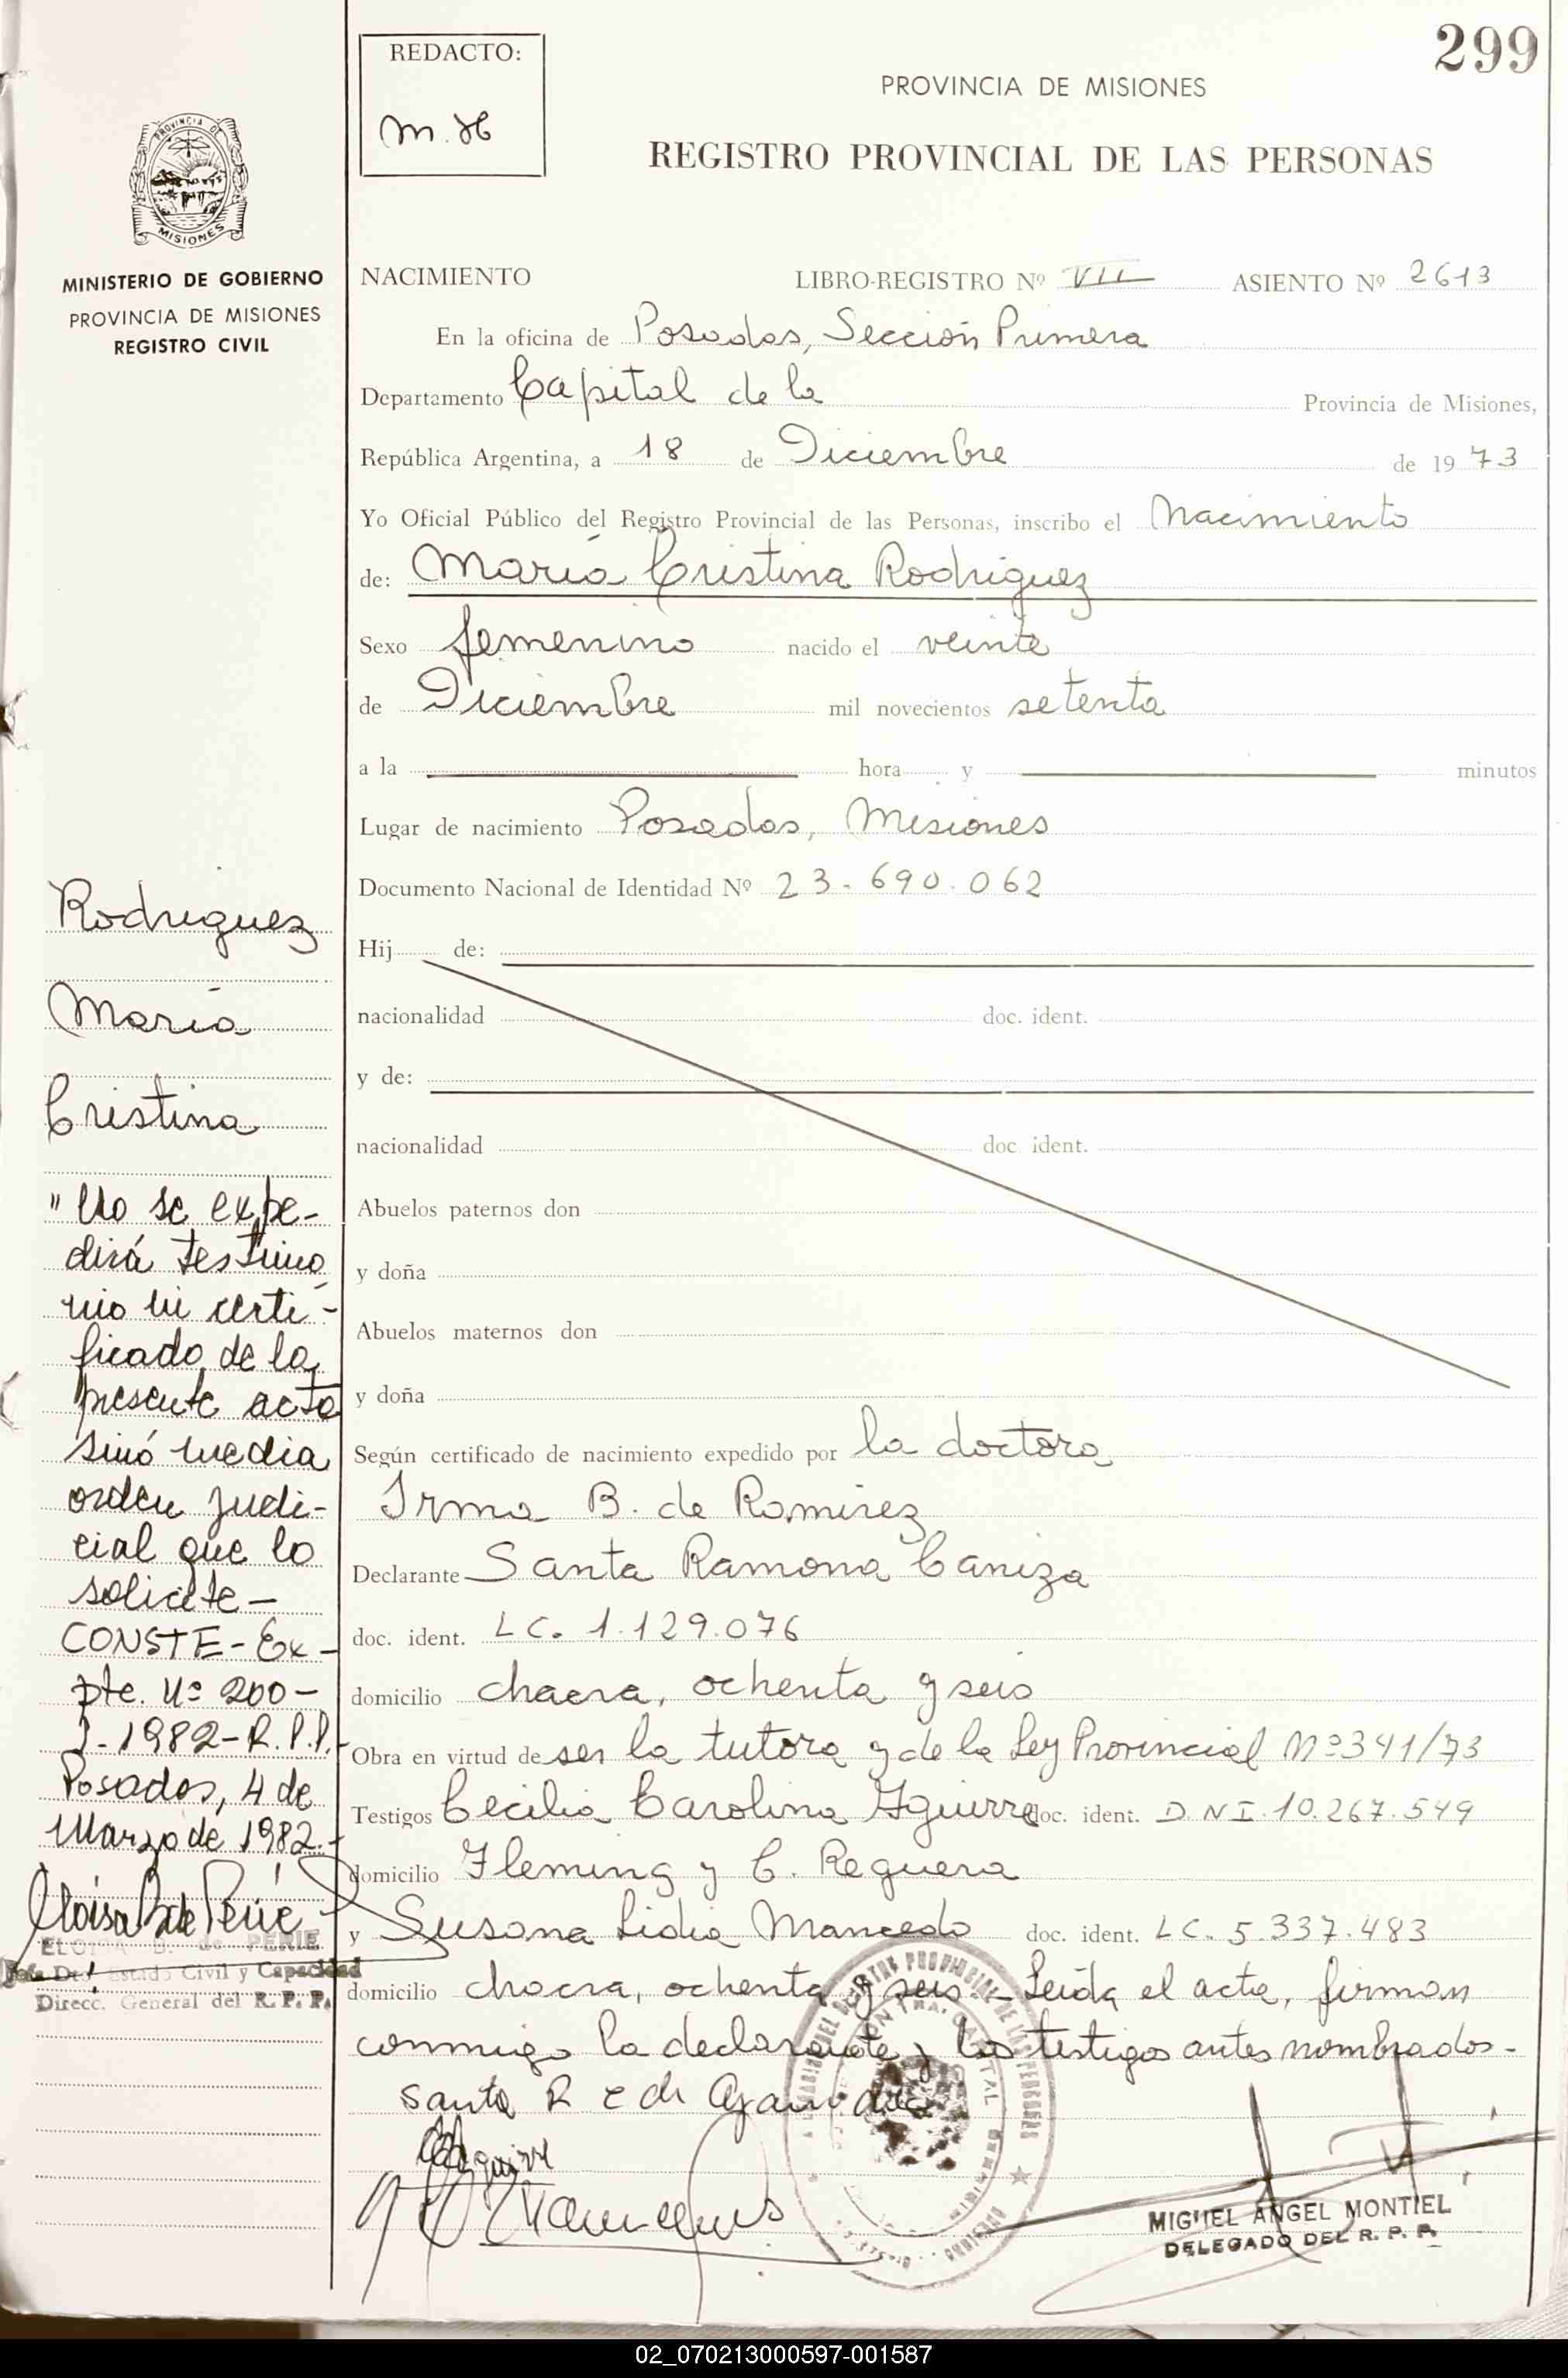 299
REDACTO:
M.H
PROVINCIA DE MISIONES
REGISTRO PROVINCIAL DE LAS PERSONAS
PROVINCIA DE
MISIONES
MINISTERIO DE GOBIERNO
PROVINCIA DE MISIONES
REGISTRO CIVIL
NACIMIENTO LIBRO-REGISTRO Nº VII ASIENTO Nº 2613
En la oficina de Posadas, Sección Primera
Departamento Capital de la Provincia de Misiones,
República Argentina, a 18 de Diciembre de 1973
Yo Oficial Público del Registro Provincial de las Personas, inscribo el Nacimiento
de: María Cristina Rodriguez
Sexo femenino nacido el veinte
de Diciembre mil novecientos setenta
a la hora y minutos
Lugar de nacimiento Posadas, Misiones
Documento Nacional de Identidad Nº 23.690.062
Hij de:
nacionalidad doc. ident.
y de:
nacionalidad doc ident.
Abuelos paternos don
y doña
Abuelos maternos don
y doña
Según certificado de nacimiento expedido por la doctora
Irma B. de Ramirez
Declarante Santa Ramona Caniza
doc. ident. LC. 1.129.076
domicilio chacra, ochenta y seis
Obra en virtud de ser la tutora y de la Ley Provincial Nº 341/73
Testigos Cecilia Carolina Aguirre doc. ident. D.N.I. 10.267.549
domicilio Fleming y C. Reguera
y Susana Lidia Mancedo doc. ident. LC. 5.337.483
domicilio chacra, ochenta y seis - Leída el acta, firman
conmigo la declarante y los testigos antes nombrados-
Santa R C de
MIGUEL ANGEL MONTIEL
DELEGADO DEL R. P. P.
Rodriguez
María
Cristina
"No se expe-
dirá testimo
nio ni certi-
ficado de la
presente acta
sinó media
orden judi-
cial que lo
solicite-
CONSTE-Ex-
pte. Nº 200-
J-1982-R.P.P.
Posadas, 4 de
Marzo de 1982.-
Eloisa B de Perié
ELOISA B. de PERIE
Jefe Dto. Estado Civil y Capacidad
Direcc. General del R. P. P.
02_070213000597-001587